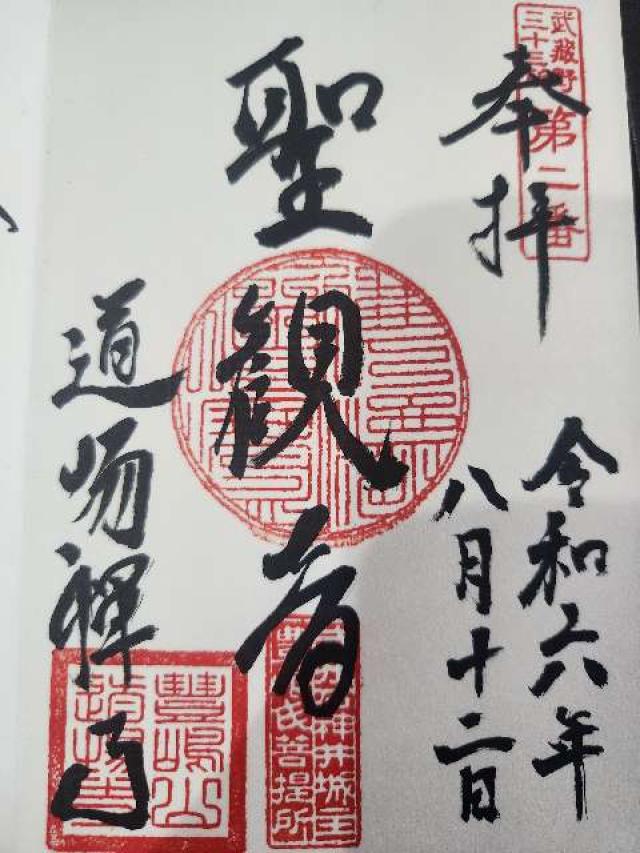 武蔵野
三十三
第二番
奉拝
令和六年
八月十二日
聖観音
神井城主
氏菩提所
道場禅寺
豐嶋山
道場寺